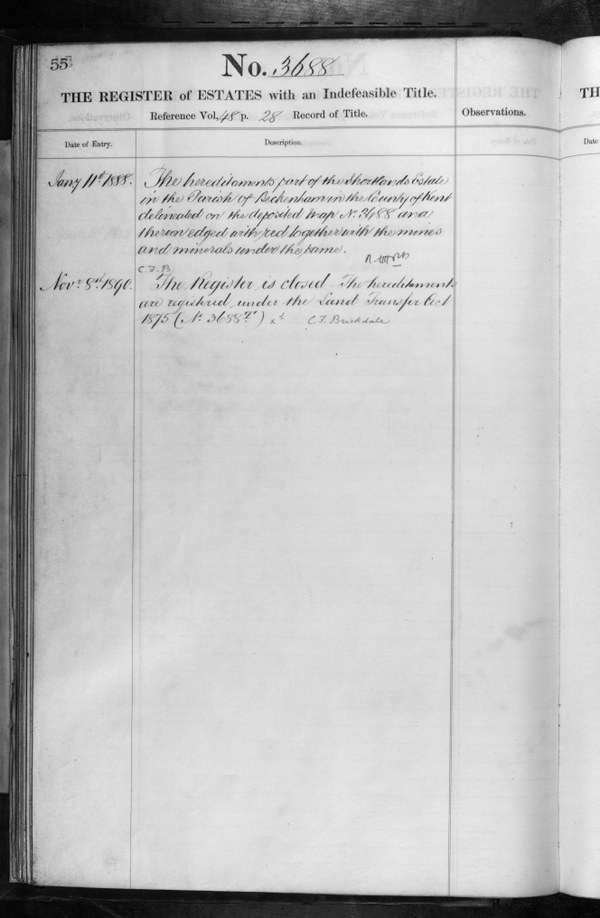 55
No. 3688
THE REGISTER of ESTATES with an Indefeasible Title.
Reference Vol, 48 p. 28 Record of Title.
Observations.
Date of Entry.
Description.
Jany 11th 1888. The hereditaments part of the Shortlands Estate
in the Parish of Beckenham in the County of Kent
delineated on the deposited Map No. 3688 and
thereon edged with red together with the mines
and minerals under the same.
C.F.B
Novr 8th 1890. The Register is closed. The hereditaments
are registered under the Land Transfer Act
1875 (No. 3688) C.F. Brickdale
TH
Date